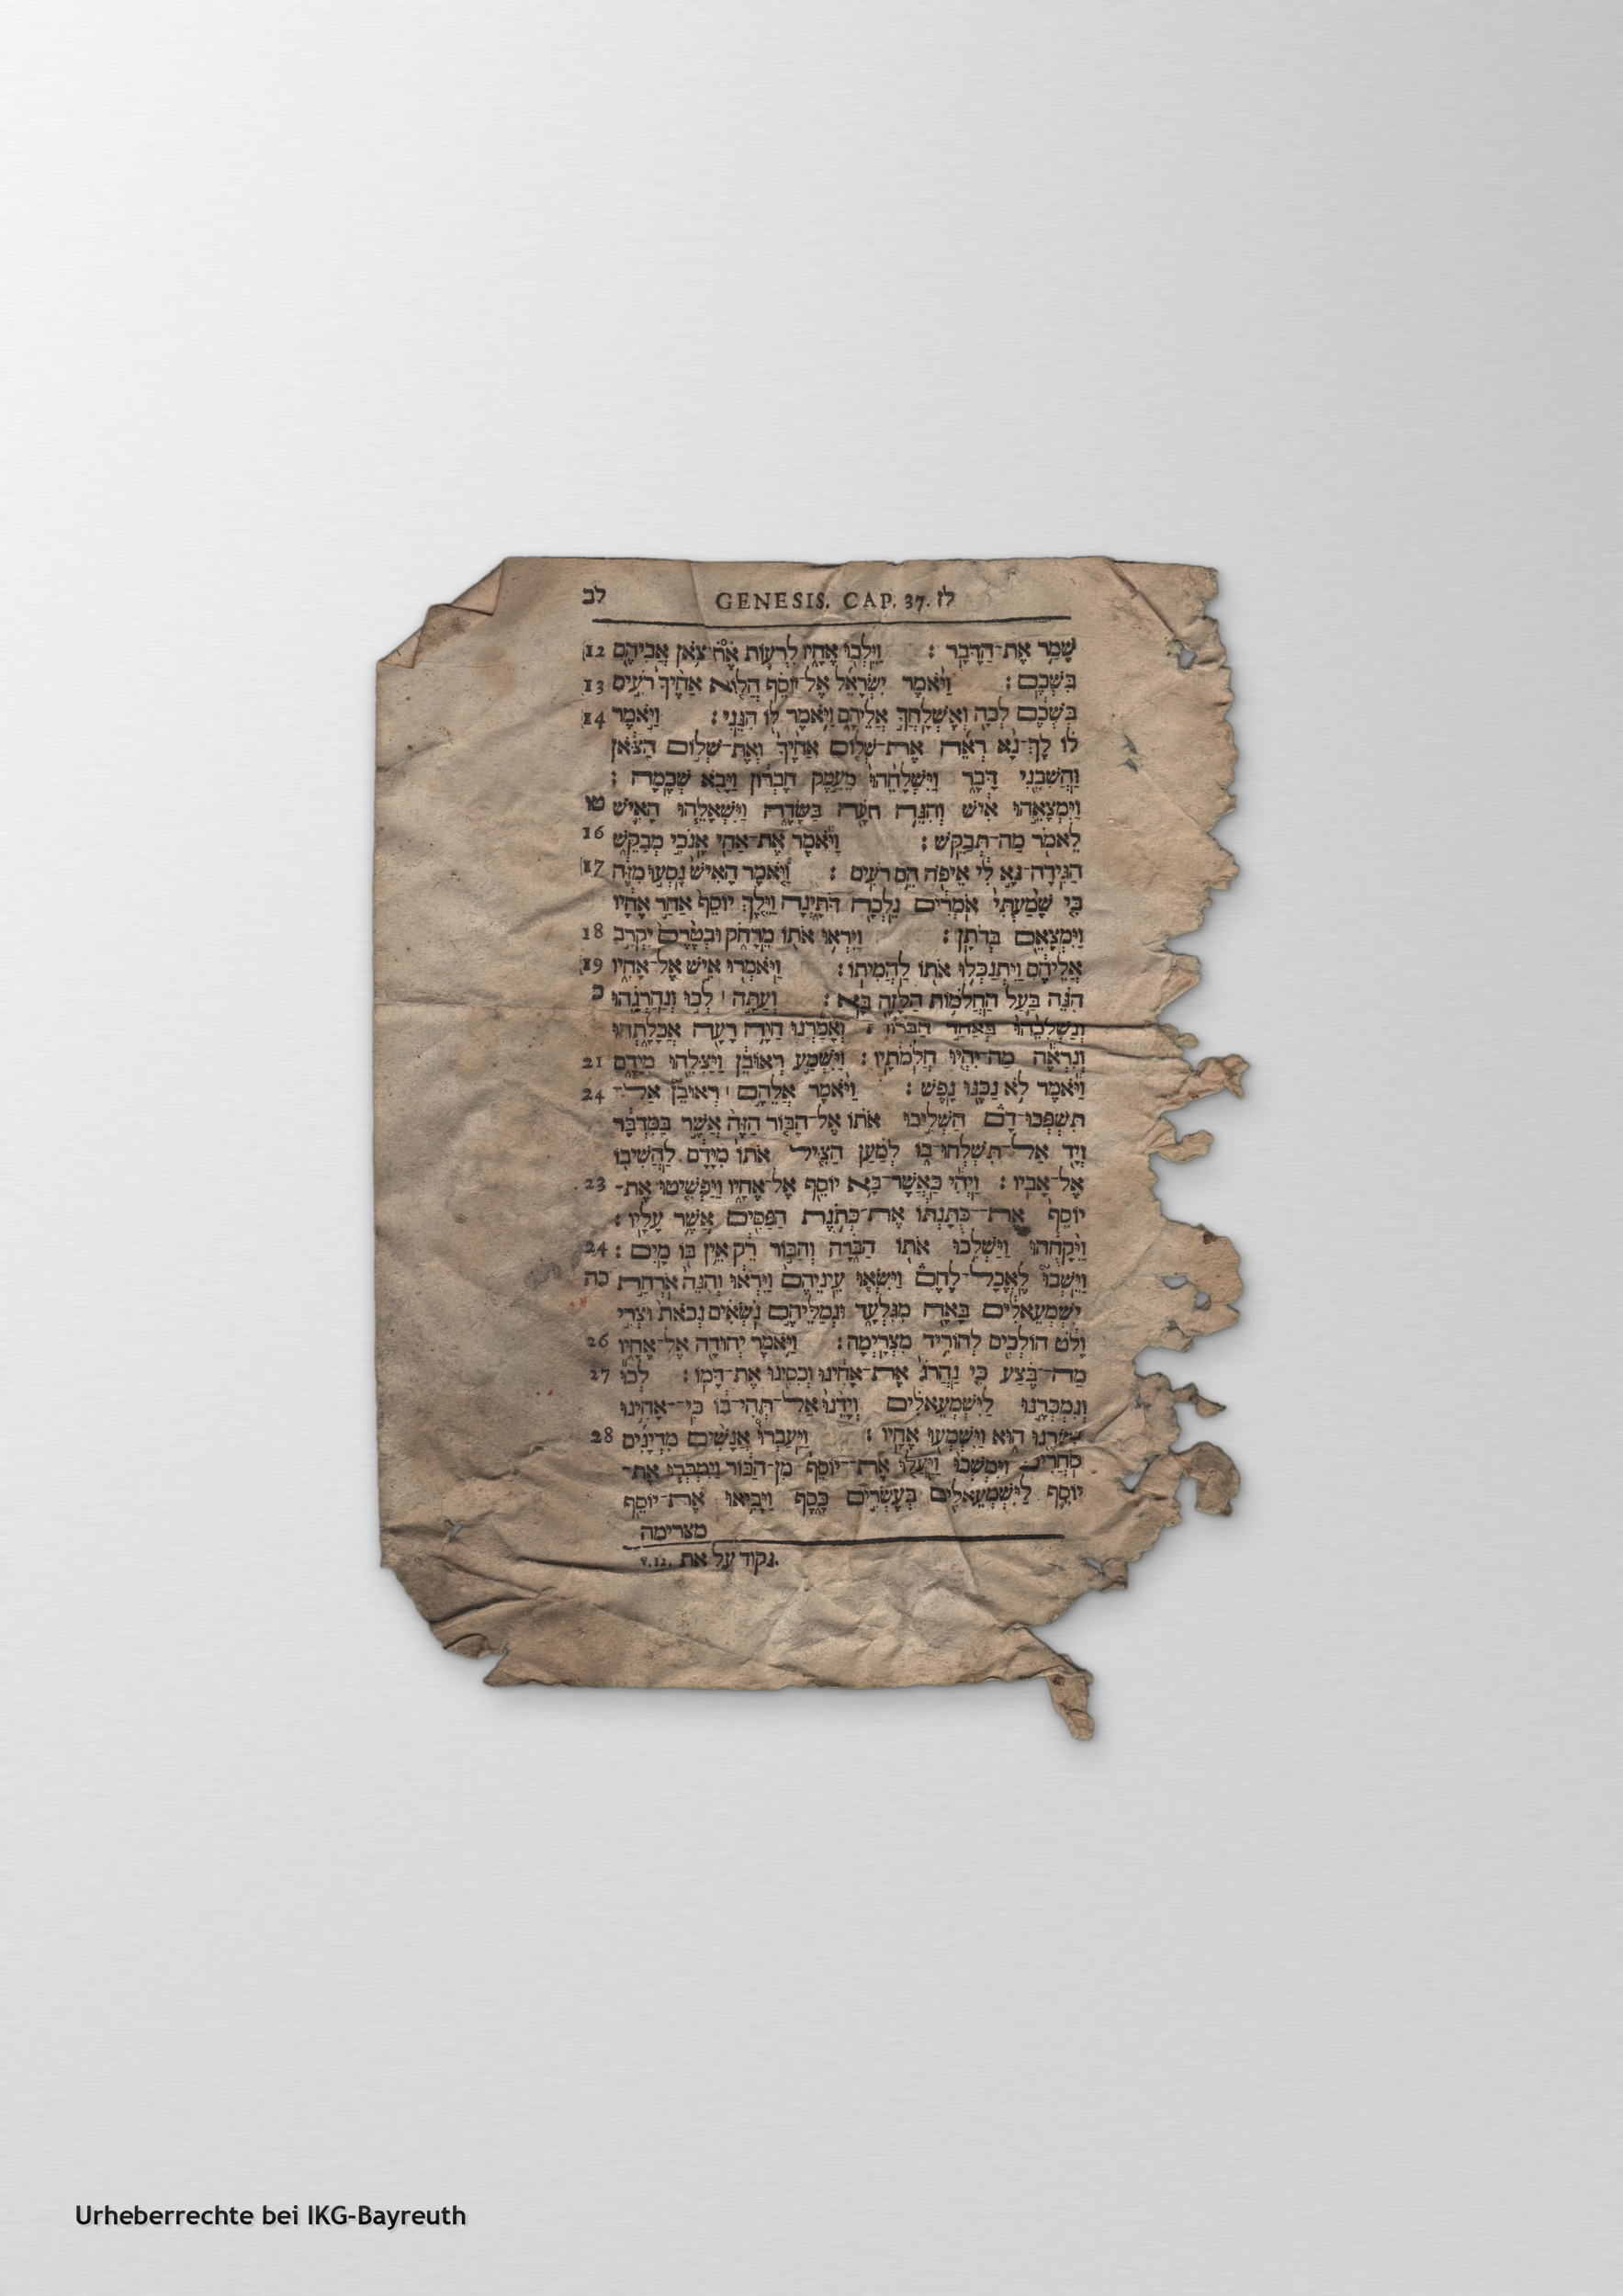 לב GENESIS. CAP. 37. לז
שָׁמַר אֶת־הַדָּבָר : וַיֵּלְכוּ אֶחָיו לִרְעוֹת אֶת־צֹאן אֲבִיהֶם 12
בִּשְׁכֶם : וַיֹּאמֶר יִשְׂרָאֵל אֶל־יוֹסֵף הֲלוֹא אַחֶיךָ רֹעִים 13
בִּשְׁכֶם לְכָה וְאֶשְׁלָחֲךָ אֲלֵיהֶם וַיֹּאמֶר לוֹ הִנֵּנִי : וַיֹּאמֶר 14
לוֹ לֶךְ־נָא רְאֵה אֶת־שְׁלוֹם אַחֶיךָ וְאֶת־שְׁלוֹם הַצֹּאן
וַהֲשִׁבֵנִי דָּבָר וַיִּשְׁלָחֵהוּ מֵעֵמֶק חֶבְרוֹן וַיָּבֹא שְׁכֶמָה :
וַיִּמְצָאֵהוּ אִישׁ וְהִנֵּה תֹעֶה בַּשָּׂדֶה וַיִּשְׁאָלֵהוּ הָאִישׁ טו
לֵאמֹר מַה־תְּבַקֵּשׁ : וַיֹּאמֶר אֶת־אַחַי אָנֹכִי מְבַקֵּשׁ 16
הַגִּידָה־נָּא לִי אֵיפֹה הֵם רֹעִים : וַיֹּאמֶר הָאִישׁ נָסְעוּ מִזֶּה 17
כִּי שָׁמַעְתִּי אֹמְרִים נֵלְכָה דֹּתָיְנָה וַיֵּלֶךְ יוֹסֵף אַחַר אֶחָיו
וַיִּמְצָאֵם בְּדֹתָן : וַיִּרְאוּ אֹתוֹ מֵרָחֹק וּבְטֶרֶם יִקְרַב 18
אֲלֵיהֶם וַיִּתְנַכְּלוּ אֹתוֹ לַהֲמִיתוֹ : וַיֹּאמְרוּ אִישׁ אֶל־אָחִיו 19
הִנֵּה בַּעַל הַחֲלֹמוֹת הַלָּזֶה בָּא : וְעַתָּה ׀ לְכוּ וְנַהַרְגֵהוּ כ
וְנַשְׁלִכֵהוּ בְּאַחַד הַבֹּרוֹת וְאָמַרְנוּ חַיָּה רָעָה אֲכָלָתְהוּ
וְנִרְאֶה מַה־יִּהְיוּ חֲלֹמֹתָיו : וַיִּשְׁמַע רְאוּבֵן וַיַּצִּלֵהוּ מִיָּדָם 21
וַיֹּאמֶר לֹא נַכֶּנּוּ נָפֶשׁ : וַיֹּאמֶר אֲלֵהֶם ׀ רְאוּבֵן אַל־ 24
תִּשְׁפְּכוּ־דָם הַשְׁלִיכוּ אֹתוֹ אֶל־הַבּוֹר הַזֶּה אֲשֶׁר בַּמִּדְבָּר
וְיָד אַל־תִּשְׁלְחוּ־בוֹ לְמַעַן הַצִּיל אֹתוֹ מִיָּדָם לַהֲשִׁיבוֹ
אֶל־אָבִיו : וַיְהִי כַּאֲשֶׁר־בָּא יוֹסֵף אֶל־אֶחָיו וַיַּפְשִׁיטוּ אֶת־ 23
יוֹסֵף אֶת־כֻּתָּנְתּוֹ אֶת־כְּתֹנֶת הַפַּסִּים אֲשֶׁר עָלָיו :
וַיִּקָּחֻהוּ וַיַּשְׁלִכוּ אֹתוֹ הַבֹּרָה וְהַבּוֹר רֵק אֵין בּוֹ מָיִם : 24
וַיֵּשְׁבוּ לֶאֱכָל־לֶחֶם וַיִּשְׂאוּ עֵינֵיהֶם וַיִּרְאוּ וְהִנֵּה אֹרְחַת כה
יִשְׁמְעֵאלִים בָּאָה מִגִּלְעָד וּגְמַלֵּיהֶם נֹשְׂאִים נְכֹאת וּצְרִי
וָלֹט הוֹלְכִים לְהוֹרִיד מִצְרָיְמָה : וַיֹּאמֶר יְהוּדָה אֶל־אֶחָיו 26
מַה־בֶּצַע כִּי נַהֲרֹג אֶת־אָחִינוּ וְכִסִּינוּ אֶת־דָּמוֹ : לְכוּ 27
וְנִמְכְּרֶנּוּ לַיִּשְׁמְעֵאלִים וְיָדֵנוּ אַל־תְּהִי־בוֹ כִּי־אָחִינוּ
בְשָׂרֵנוּ הוּא וַיִּשְׁמְעוּ אֶחָיו : וַיַּעַבְרוּ אֲנָשִׁים מִדְיָנִים 28
סֹחֲרִים וַיִּמְשְׁכוּ וַיַּעֲלוּ אֶת־יוֹסֵף מִן־הַבּוֹר וַיִּמְכְּרוּ אֶת־
יוֹסֵף לַיִּשְׁמְעֵאלִים בְּעֶשְׂרִים כָּסֶף וַיָּבִיאוּ אֶת־יוֹסֵף
מצרימה
v.12. נקוד על את.
Urheberrechte bei IKG-Bayreuth